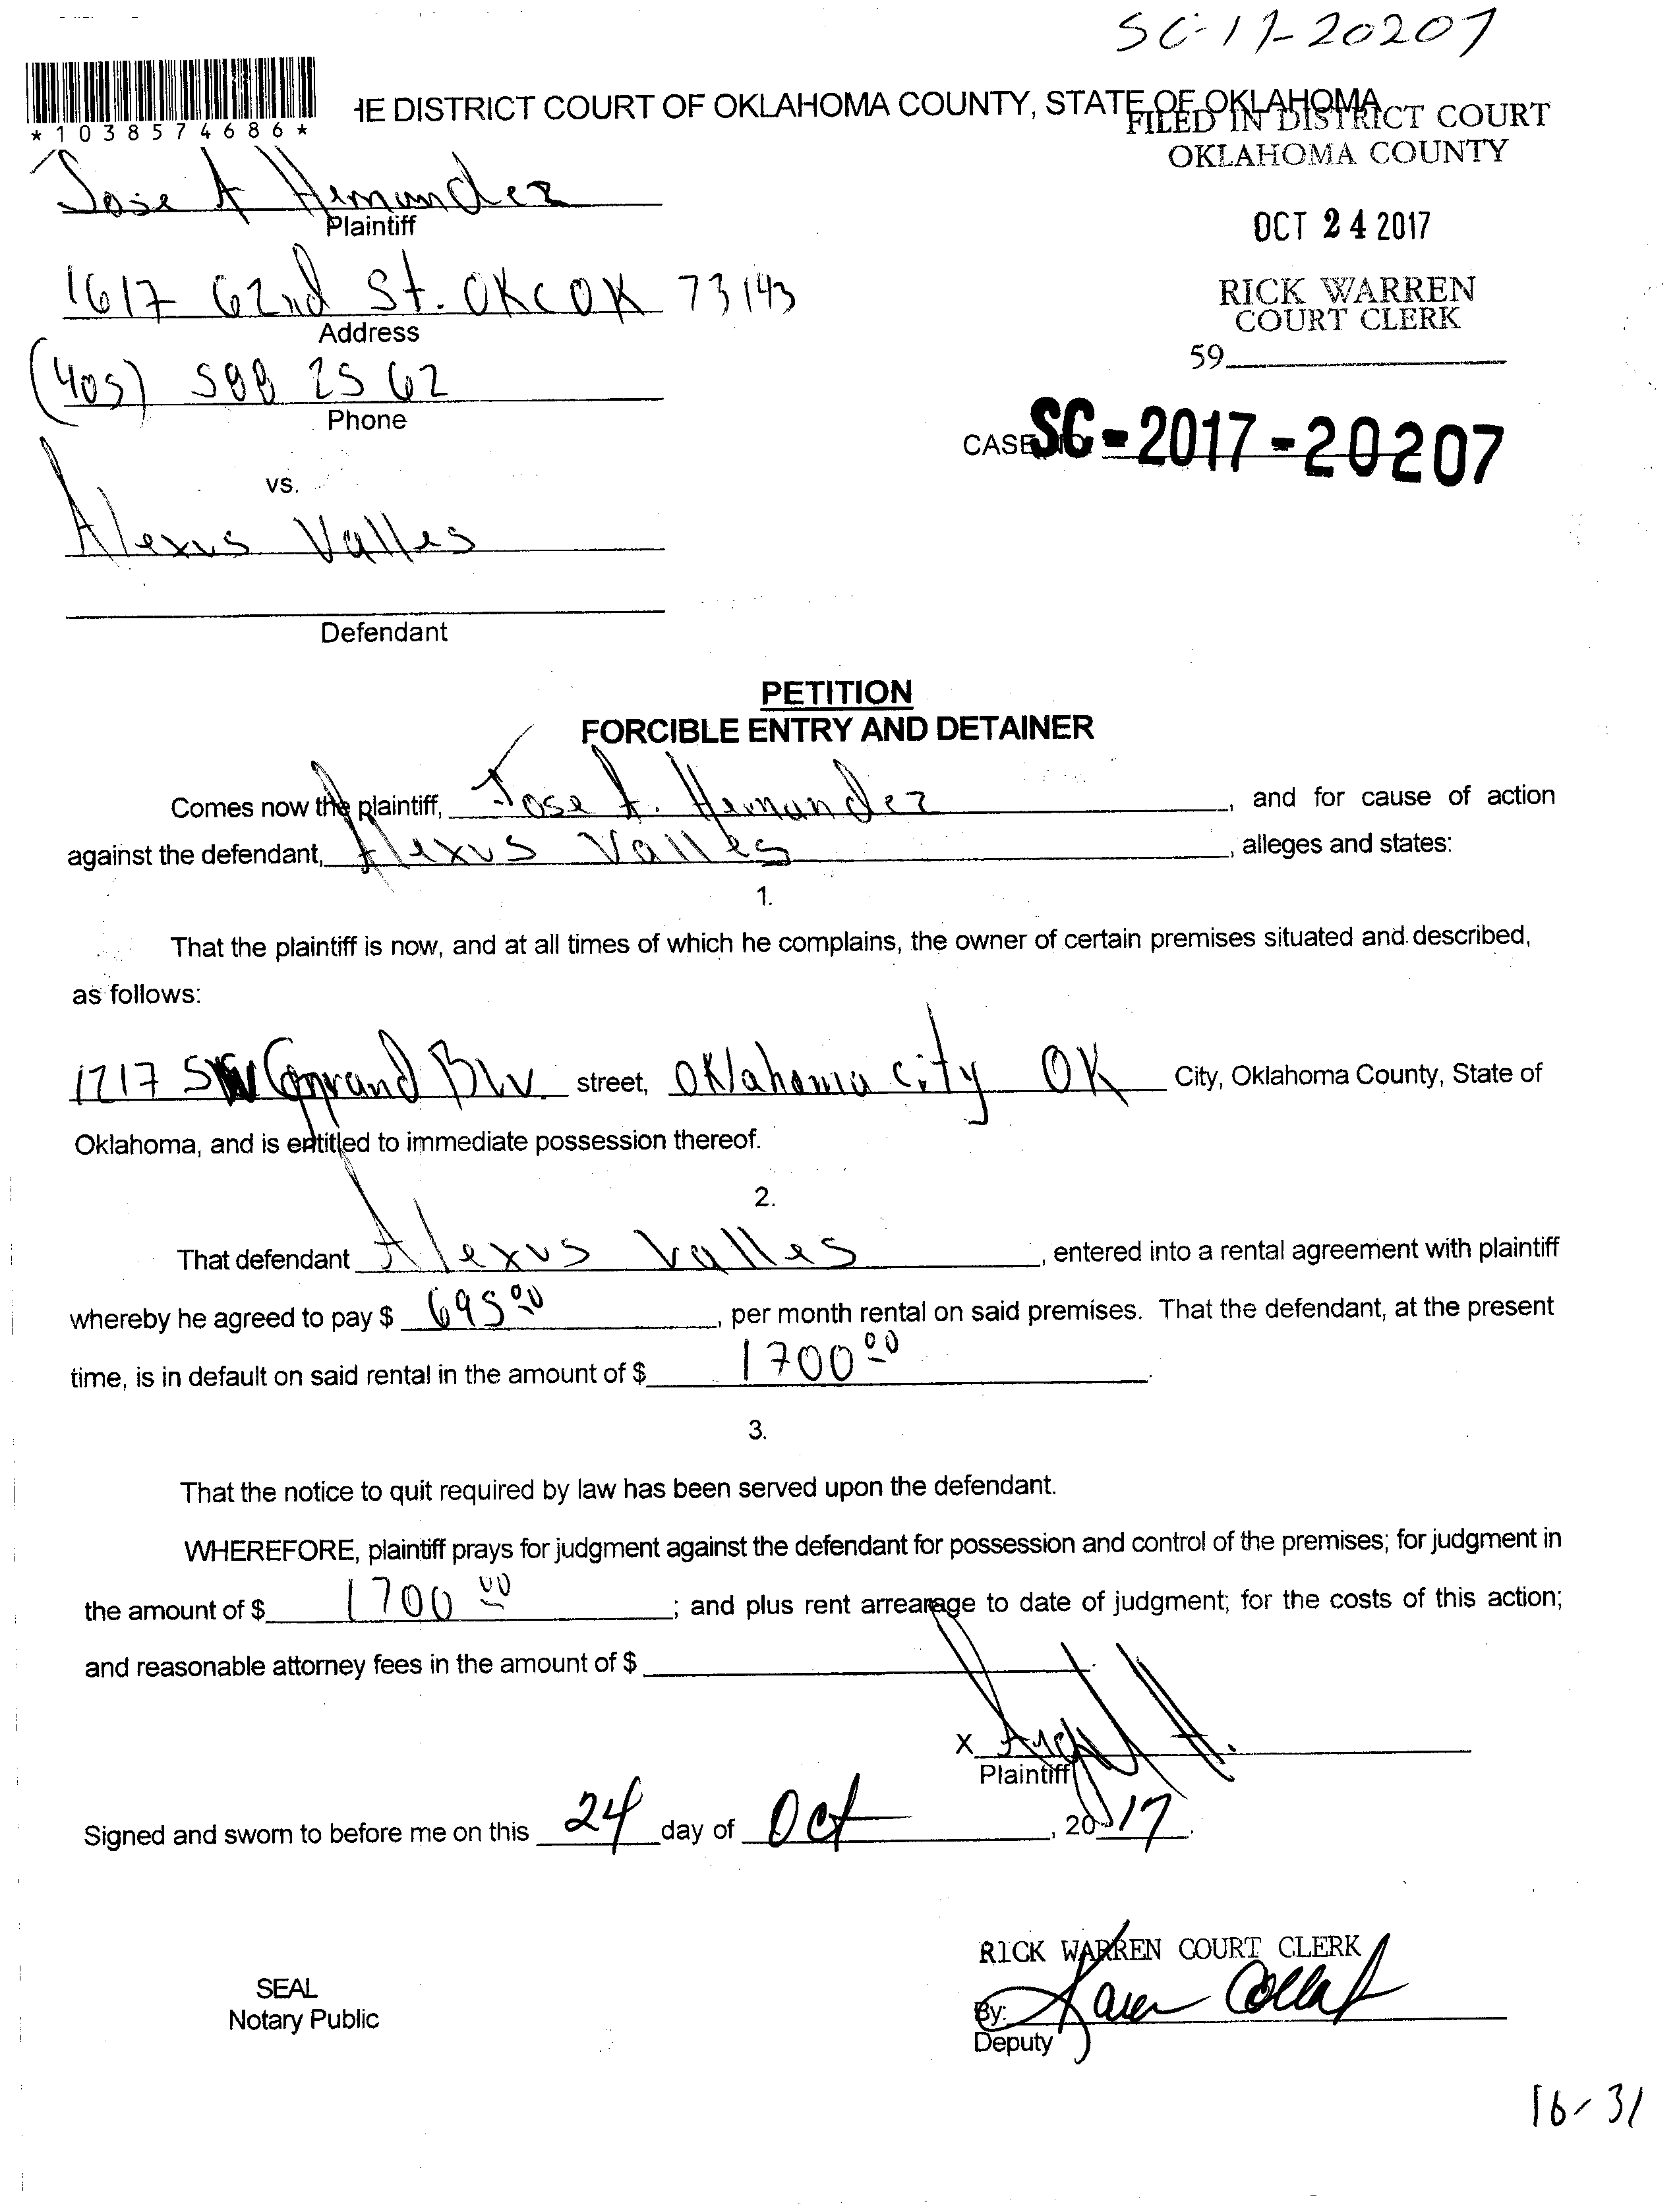 SC-17-20207
*1038574686*
HE DISTRICT COURT OF OKLAHOMA COUNTY, STATE OF OKLAHOMA
FILED IN DISTRICT COURT
OKLAHOMA COUNTY
Jose A Hernandez
Plaintiff
OCT 24 2017
1617 62nd St. OKC OK 73143
Address
RICK WARREN
COURT CLERK
(405) 588 2562
Phone
59
CASE NO SC-2017-20207
vs.
Alexus Valles
Defendant
PETITION
FORCIBLE ENTRY AND DETAINER
Comes now the plaintiff, Jose A. Hernandez, and for cause of action
against the defendant, Alexus Valles, alleges and states:
1.
That the plaintiff is now, and at all times of which he complains, the owner of certain premises situated and described,
as follows:
1217 SW Grand Blv. street, Oklahoma city OK City, Oklahoma County, State of
Oklahoma, and is entitled to immediate possession thereof.
2.
That defendant Alexus Valles, entered into a rental agreement with plaintiff
whereby he agreed to pay $ 695 00, per month rental on said premises. That the defendant, at the present
time, is in default on said rental in the amount of $ 1700 00.
3.
That the notice to quit required by law has been served upon the defendant.
WHEREFORE, plaintiff prays for judgment against the defendant for possession and control of the premises; for judgment in
the amount of $ 1700 00; and plus rent arrearage to date of judgment; for the costs of this action;
and reasonable attorney fees in the amount of $
X
Plaintiff
Signed and sworn to before me on this 24 day of Oct, 2017.
RICK WARREN COURT CLERK
SEAL
Notary Public
By: Karen
Deputy
16-31